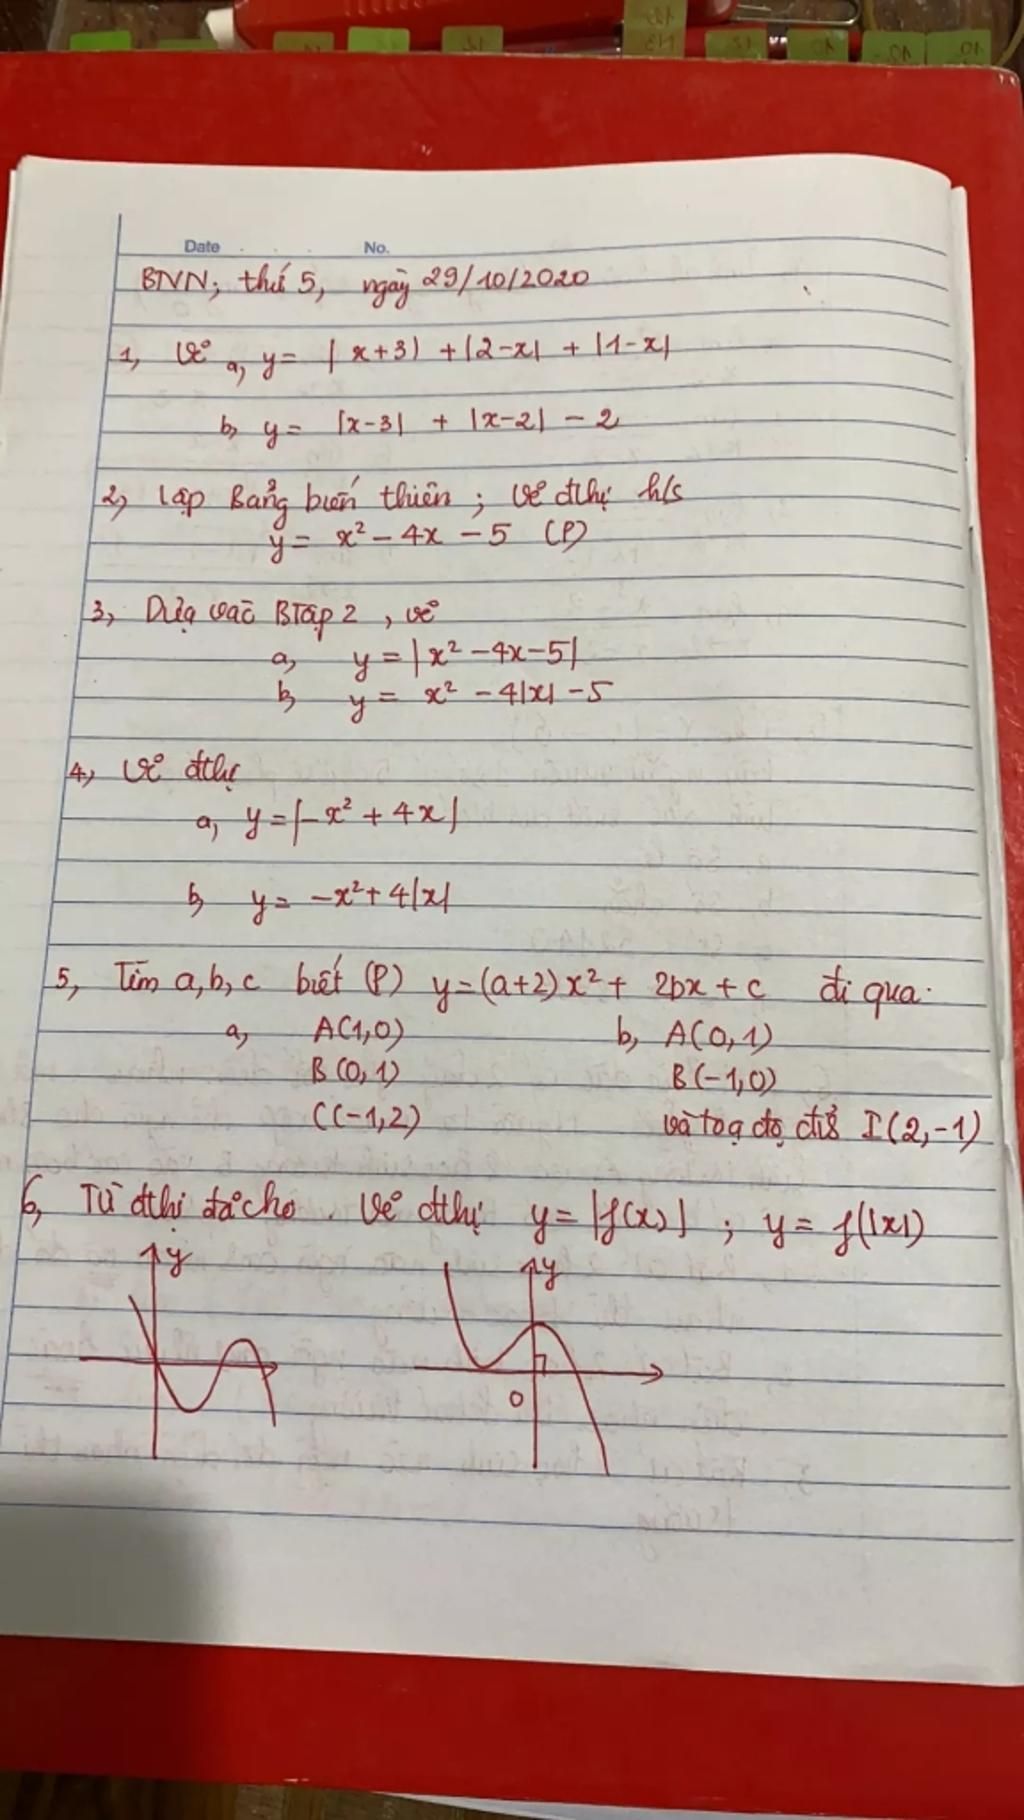 Date No.
BTVN; thứ 5, ngày 29/10/2020
1, Vẽ a, y = |x+3| + |2-x| + |1-x|
b, y = |x-3| + |x-2| - 2
2, Lập Bảng biến thiên; Vẽ đthị h/s
y = x² - 4x - 5 (P)
3, Dựa vào BTập 2, vẽ
a, y = |x² - 4x - 5|
b, y = x² - 4|x| - 5
4, Vẽ đthị
a, y = |-x² + 4x|
b, y = -x² + 4|x|
5, Tìm a, b, c biết (P) y = (a+2)x² + 2bx + c đi qua.
a, A(1,0) b, A(0,1)
B(0,1) B(-1,0)
C(-1,2) và toạ độ đỉ I(2,-1)
6, Từ đthị đã cho. Vẽ đthị y = |f(x)|; y = f(|x|)
y y
0